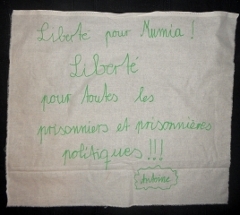 Liberté pour Mumia !
Liberté
pour toutes les
prisonniers et prisonnières
politiques !!!
Antoine